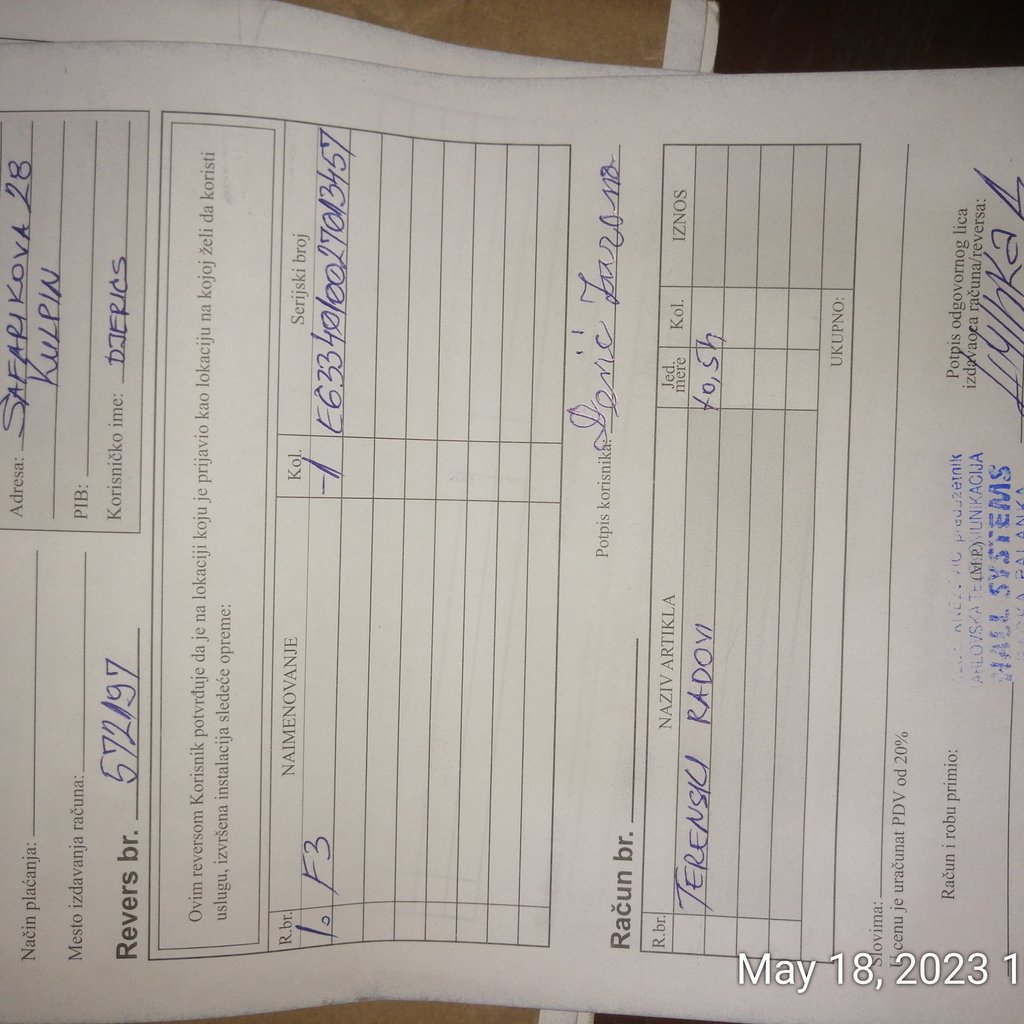 Adresa: SAFARIKOVA 28
KULPIN
PIB:
Korisničko ime: DJERICS
Način plaćanja:
Mesto izdavanja računa:
Revers br. 572197
Ovim reversom Korisnik potvrđuje da je na lokaciji koju je prijavio kao lokaciju na kojoj želi da koristi
uslugu, izvršena instalacija sledeće opreme:
R.br. NAIMENOVANJE Kol. Serijski broj
1. F3 1 E6334010027013457
Potpis korisnika:
Račun br.
R.br. NAZIV ARTIKLA Jed. mere Kol. IZNOS
TERENSKI RADOVI 10,5h
UKUPNO:
Slovima:
U cenu je uračunat PDV od 20%
Račun i robu primio:
(M.P.)
Potpis odgovornog lica
izdavaoca računa/reversa:
preduzetnik
MALI SYSTEMS
PALANKA
May 18, 2023 1